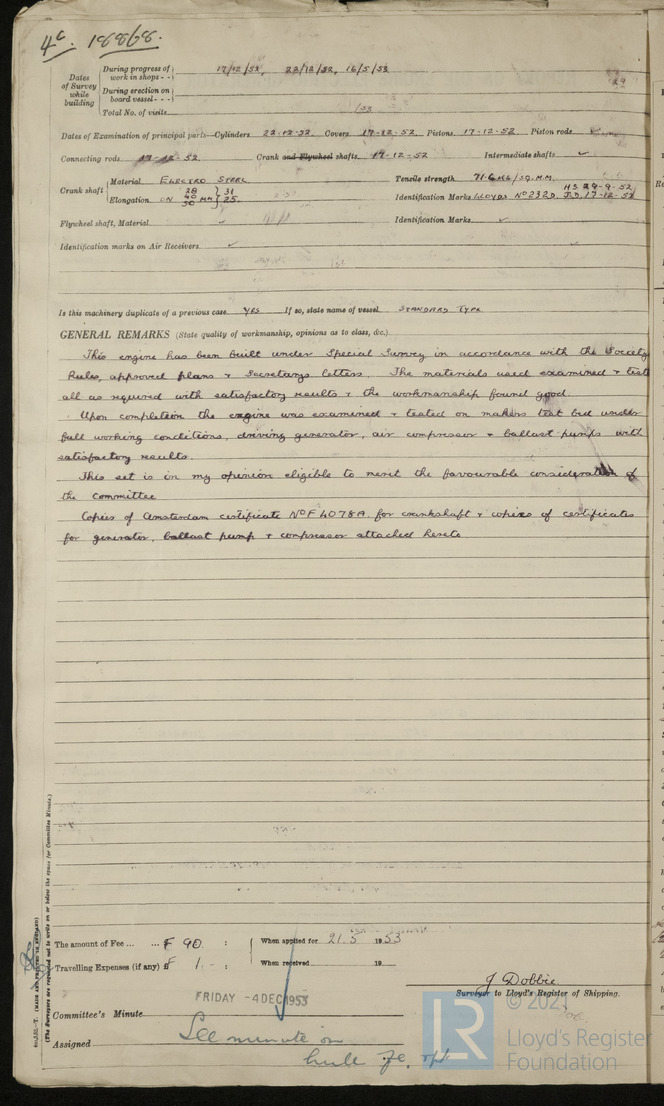 4c. 18868.
Dates of Survey while building
During progress of work in shops - - 17/12/52, 22/12/52, 16/5/53
During erection on board vessel - - -
Total No. of visits
Dates of Examination of principal parts—Cylinders 22.12.52. Covers 17-12-52. Pistons 17-12-52 Piston rods ✓
Connecting rods 17-12-52 Crank and Flywheel shafts 17-12-52 Intermediate shafts ✓
Crank shaft Material ELECTRO STEEL Tensile strength 71.6 KG/SQ.MM.
Elongation ON 28 40 50 MM 31 25. Identification Marks LLOYDS No 232D. H.S. 29-9-52 J.D. 17-12-52
Flywheel shaft, Material ✓ Identification Marks ✓
Identification marks on Air Receivers ✓
Is this machinery duplicate of a previous case YES If so, state name of vessel STANDARD TYPE
GENERAL REMARKS (State quality of workmanship, opinions as to class, &c.)
This engine has been built under Special Survey in accordance with the Society
Rules, approved plans & Secretarys letters. The materials used examined & test
all as required with satisfactory results & the workmanship found good
Upon completion the engine was examined & tested on makers test bed under
full working conditions, driving generator, air compressor & ballast pumps with
satisfactory results.
This set is in my opinion eligible to merit the favourable consideration of
the committee
Copies of Amsterdam certificate No F 4078A for crankshaft & copies of certificates
for generator, ballast pump & compressor attached hereto
The amount of Fee ... ... F 90 : : When applied for 21.5 1953
Travelling Expenses (if any) F 1. - : When received 19
J Dobbie
Surveyor to Lloyd's Register of Shipping.
FRIDAY -4 DEC 1953
Committee's Minute
See minute on
Assigned
hull Fe. rpt.
(MADE AND PRINTED IN ENGLAND)
(The Surveyors are requested not to write on or below the space for Committee Minute.)
LR
© 2021
Lloyd's Register
Foundation